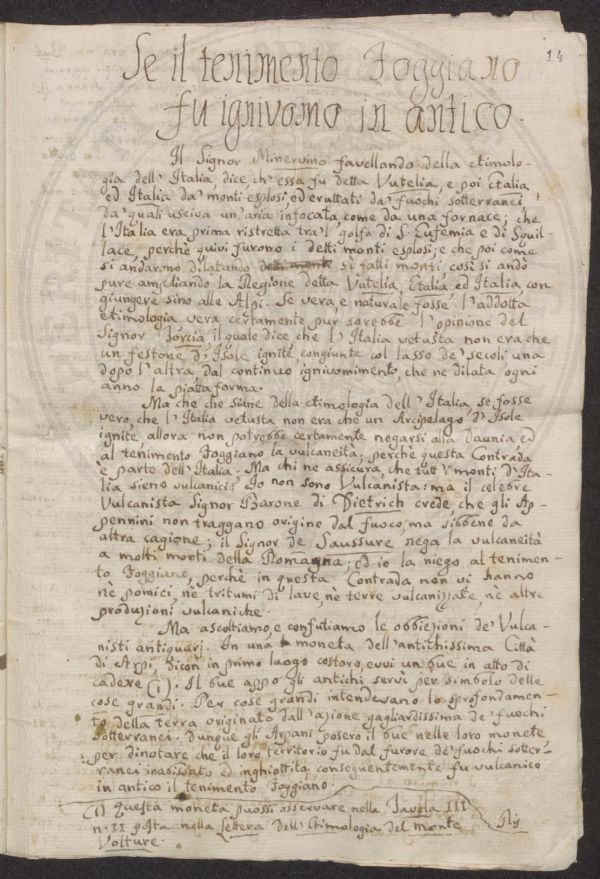 14
Se il tenimento Foggiano
fu ignivomo in antico.
Il Signor Minervino favellando della etimolo-
gia dell'Italia, dice, ch'essa fu detta Vutelia, e poi Etalia,
ed Italia da' monti esplosi, ed eruttati da' fuochi sotterranei,
da' quali usciva un'aria infocata, come da una fornace; che
l'Italia era prima ristretta tra 'l golfo di S. Eufemia e di Squil-
lace, perchè quivi furono i detti monti esplosi; e che poi come
si andarono dilatando si fatti monti, così si andò
pure ampliando la Regione detta Vutelia, Etalia ed Italia con
giungere sino alle Alpi. Se vera, e naturale fosse l'addotta
etimologia vera certamente pur sarebbe l'opinione del
Signor Torcia, il quale dice che l'Italia vetusta non era che
un festone d'Isole ignite, congiunte col lasse de' secoli una
dopo l'altra, dal continuo ignivomimento, che ne dilata ogni
anno la piatta forma.
Ma che che siane della etimologia dell'Italia, se fosse
vero, che l'Italia vetusta non era che un Arcipelago d'Isole
ignite, allora non potrebbe certamente negarsi alla Daunia, ed
al tenimento Foggiano la vulcaneità; perchè questa Contrada
è parte dell'Italia. Ma chi ne assicura, che tutt'i monti d'Ita-
lia sieno vulcanici? Io non sono Vulcanista: ma il celebre
Vulcanista Signor Barone di Dietrich crede, che gli Ap-
pennini non traggano origine dal fuoco, ma sibbene da
altra cagione; il Signor de Saussure nega la vulcaneità
a molti monti della Romagna; ed io la niego al tenimen-
to Foggiano, perchè in questa Contrada non vi hanno
nè pomici, nè tritumi di lave, nè terre vulcanizzate, nè altre
produzioni vulcaniche.
Ma ascoltiamo, e confutiamo le obbiezioni de' Vulca-
nisti antiquarj. In una moneta dell'antichissima Città
di Arpi, dicon in primo luogo costoro, evvi un bue in atto di
cadere (1). Il bue appo gli antichi servì per simbolo delle
cose grandi. Per cose grandi intendevano lo sprofondamen-
to della terra originato dall'azione gagliardissima de' fuochi
sotterranei. Dunque gli Arpani posero il bue nelle loro monete
per dinotare che il loro territorio fu dal furore de' fuochi sotter-
ranei inabissato ed inghiottito conseguentemente fu vulcanico
in antico il tenimento Foggiano.
(1) Questa moneta puossi osservare nella Tavola III
n. II nella Lettera Dell'Etimologia del monte
Volture.